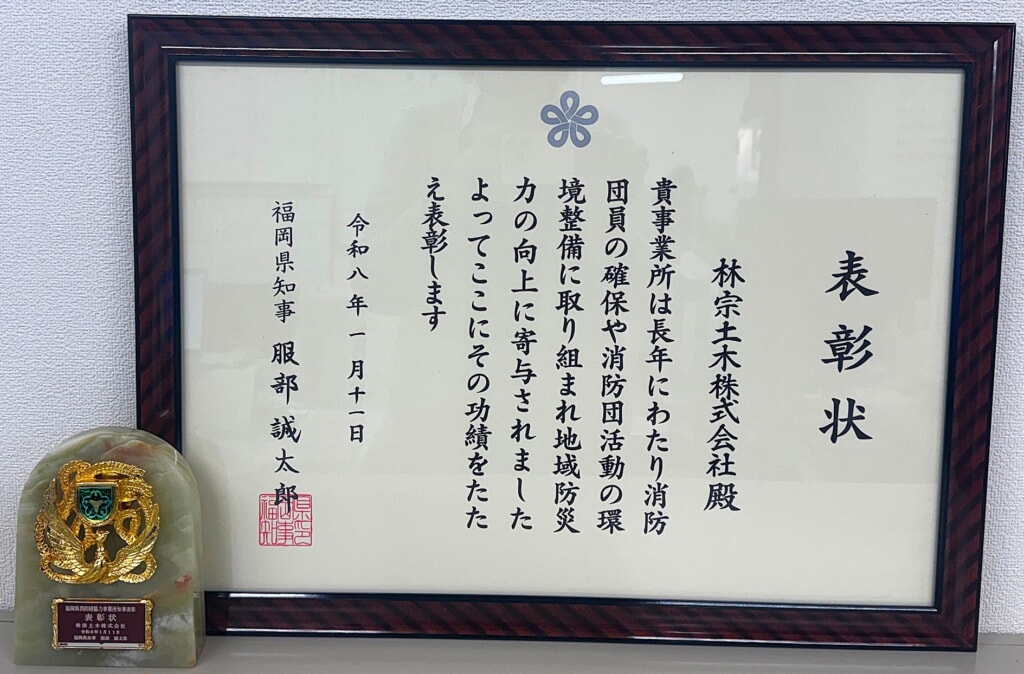 表彰状
林宗土木株式会社殿
貴事業所は長年にわたり消防
団員の確保や消防団活動の環
境整備に取り組まれ地域防災
力の向上に寄与されました
よってここにその功績をたた
え表彰します
令和八年一月十一日
福岡県知事 服部誠太郎
福岡県消防団協力事業所知事表彰
表彰状
林宗土木株式会社
令和8年1月11日
福岡県知事 服部 誠太郎